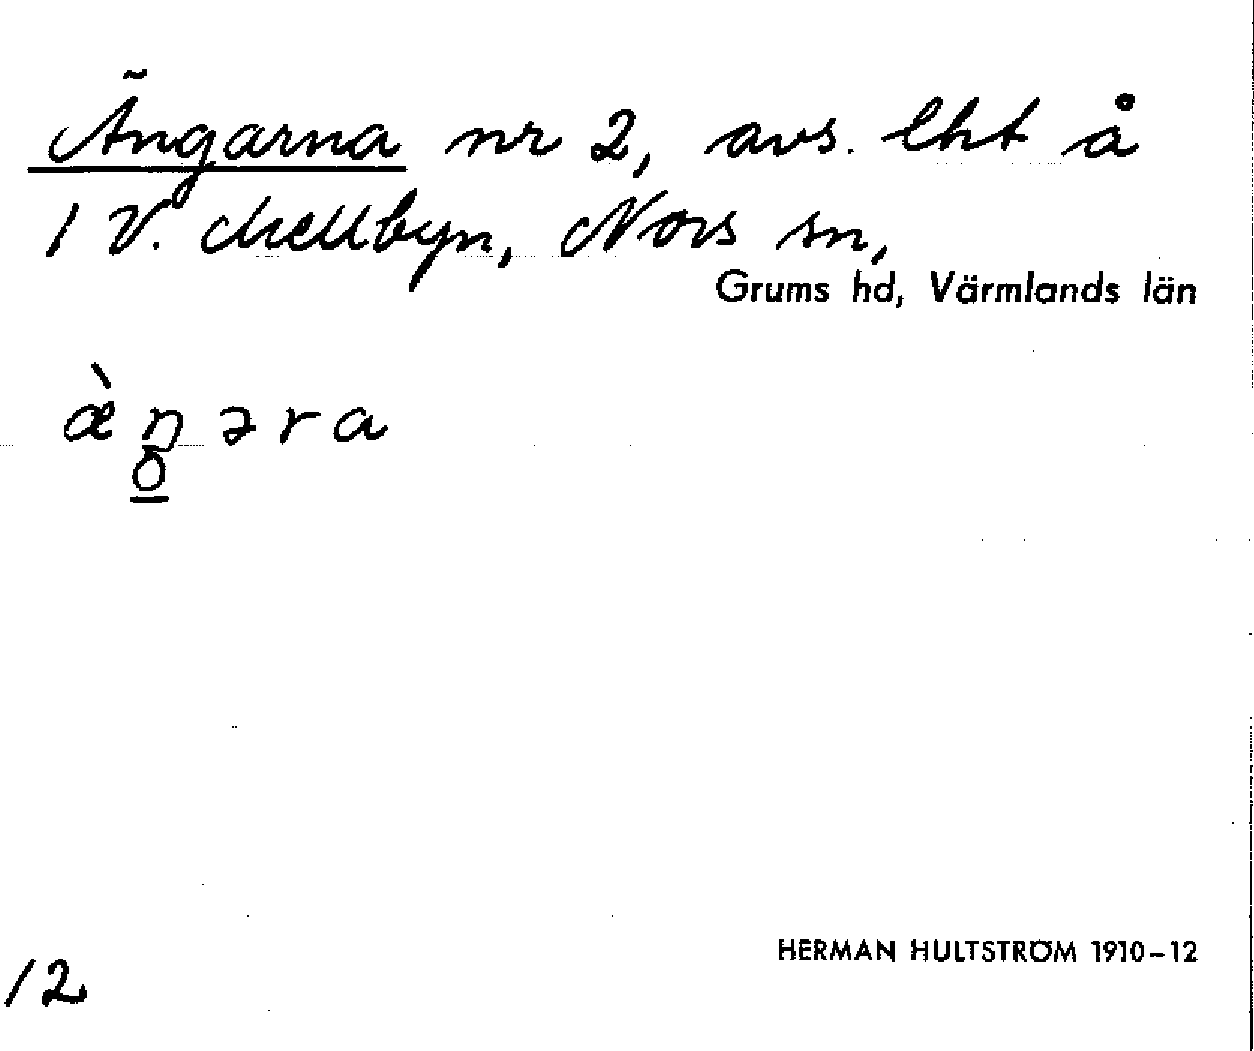 Ängarna nr 2, avs. lht å
1 V. Mellbyn, Nors sn,
Grums hd, Värmlands län
æ̀ŋəra
o
HERMAN HULTSTRÖM 1910-12
12